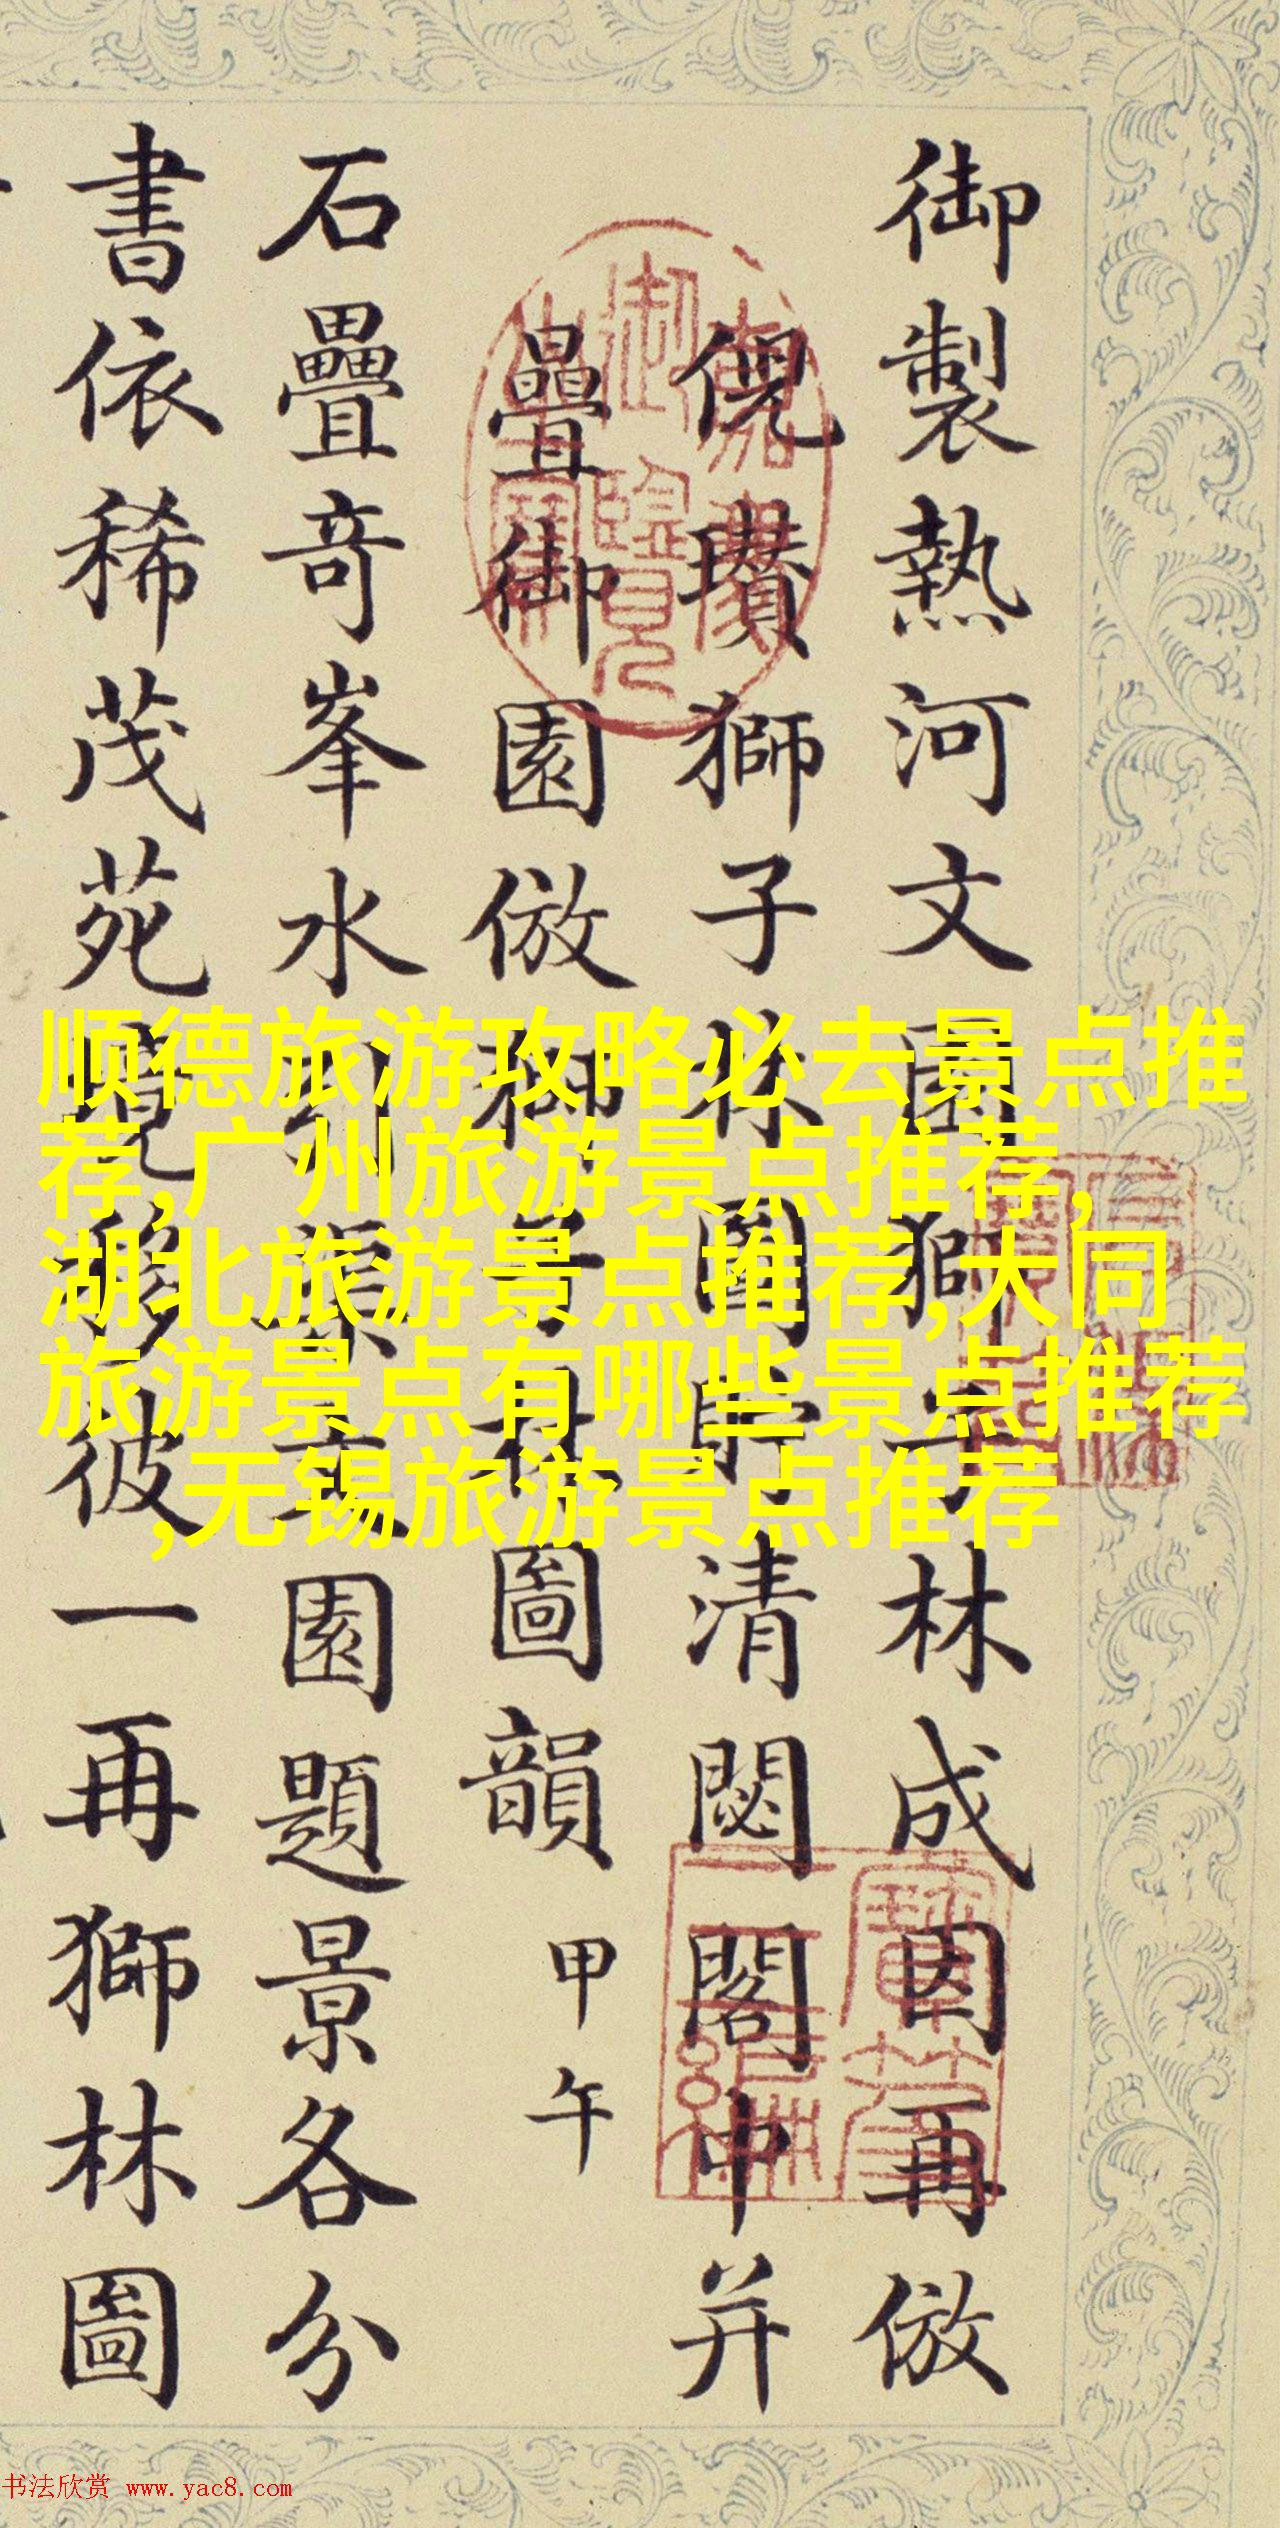 御製熱河文園獅子林成因再倣
倪瓚獅子林圖貯清閟閣中并
疊御園倣獅子林圖韻 甲午
石疊奇峯水引文園題景各分
書依稀茂苑移彼一再獅林圖
嘉慶御覽之寶
寶笈三編
顺德旅游攻略必去景点推
荐,广州旅游景点推荐,
湖北旅游景点推荐,大同
旅游景点有哪些景点推荐
,无锡旅游景点推荐
书法欣赏 www.yac8.com